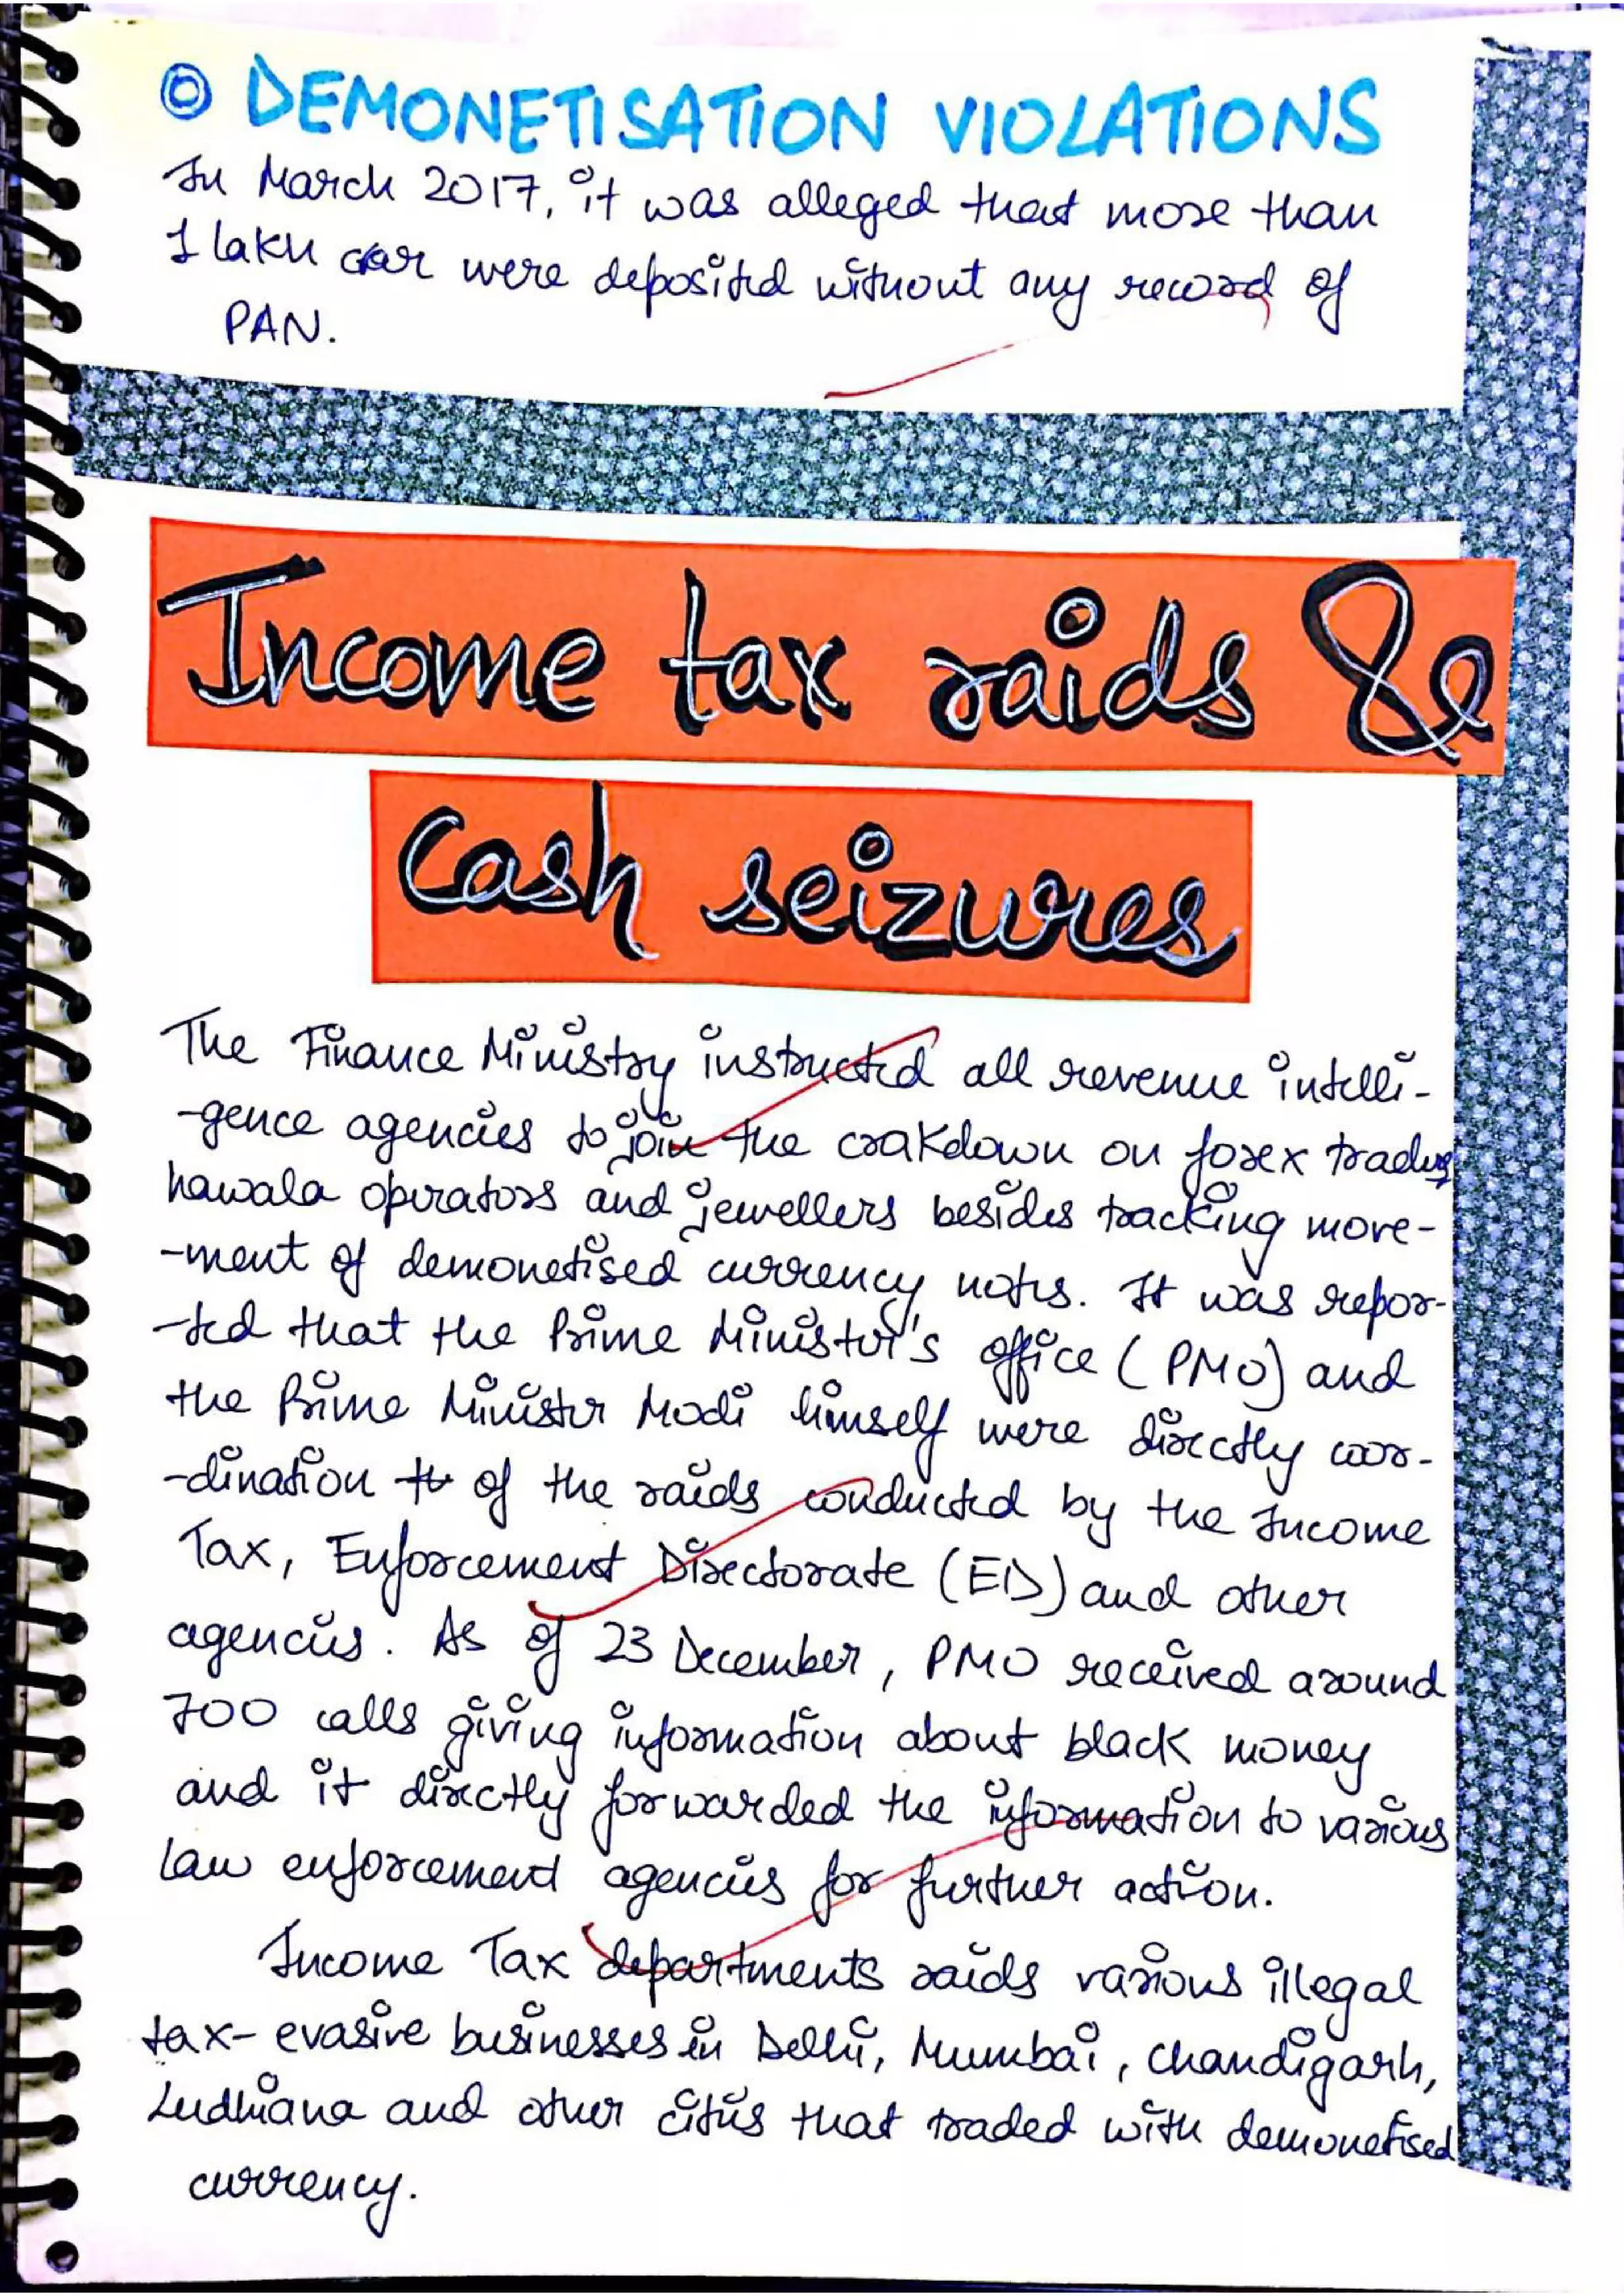 DEMONETISATION VIOLATIONS
In March 2017, it was alleged that more than
1 lakh were deposited without any record of
PAN.
Income tax raids &
Cash seizures
The Finance Ministry instructed all revenue intelli-
-gence agencies to join the crakdown on forex trading
hawala operators and jewellers besides tracking move-
-ment of demonetised currency notes. It was repor-
-ted that the Prime Minister's office (PMO) and
the Prime Minister Modi himself were directly coor-
-dination of the raids conducted by the Income
Tax, Enforcement Directorate (ED) and other
agencies. As of 23 December, PMO received around
700 calls giving information about black money
and it directly forwarded the information to various
law enforcement agencies for further action.
Income Tax departments raids various illegal
tax-evasive businesses in Delhi, Mumbai, Chandigarh,
Ludhiana and other cities that traded with demonetised
currency.